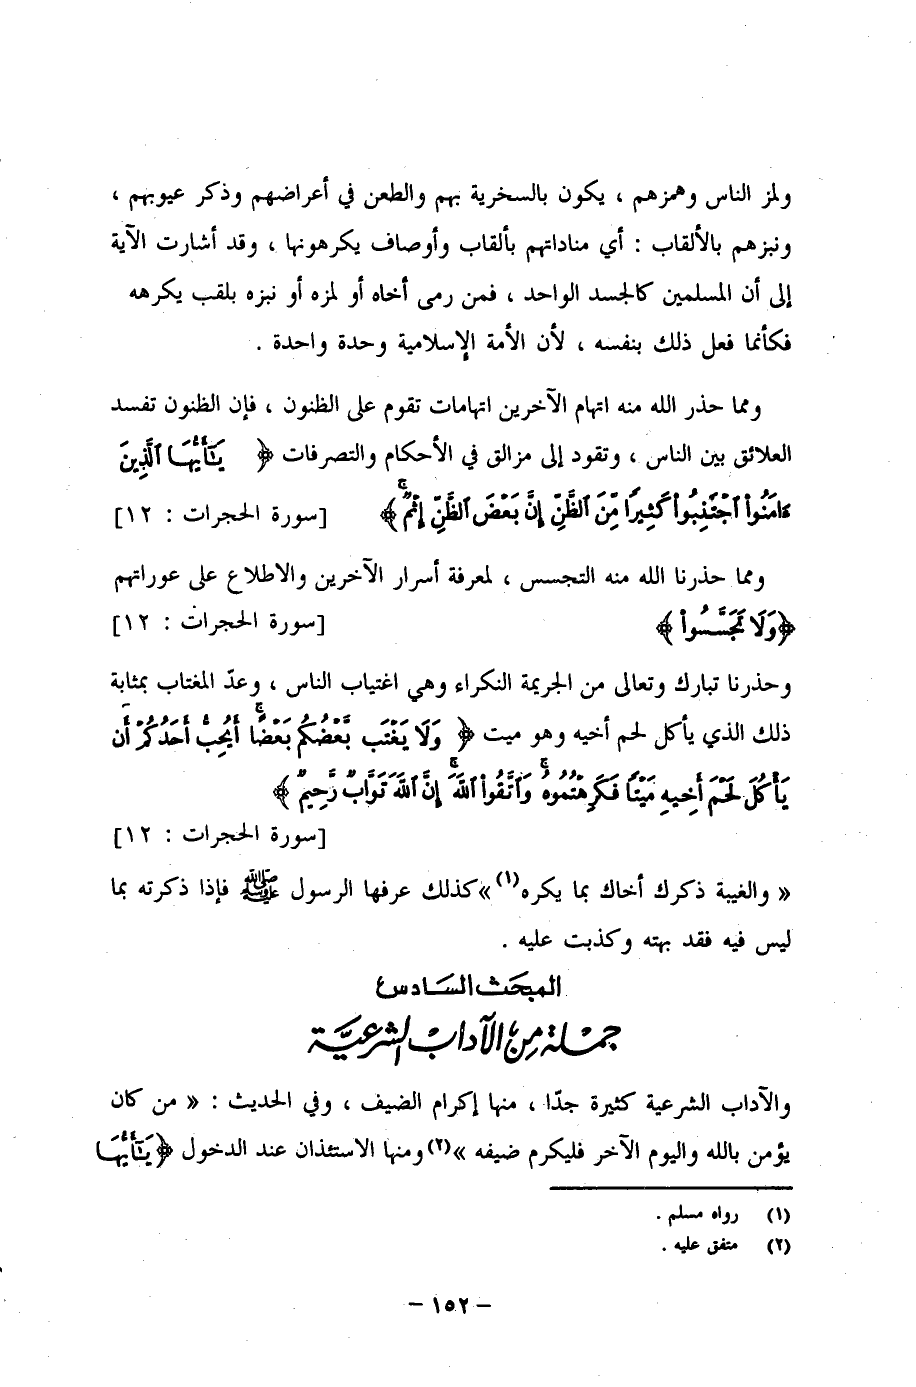 ولمز الناس وهمزهم ، يكون بالسخرية بهم والطعن في أعراضهم وذكر عيوبهم ،
ونبزهم بالألقاب : أي مناداتهم بألقاب وأوصاف يكرهونها ، وقد أشارت الآية
إلى أن المسلمين كالجسد الواحد ، فمن رمى أخاه أو لمزه أو نبزه بلقب يكرهه
فكأنما فعل ذلك بنفسه ، لأن الأمة الإسلامية وحدة واحدة .
ومما حذر الله منه اتهام الآخرين اتهامات تقوم على الظنون ، فإن الظنون تفسد
العلائق بين الناس ، وتقود إلى مزالق في الأحكام والتصرفات ﴿ يَٰٓأَيُّهَا ٱلَّذِينَ
ءَامَنُوا۟ ٱجْتَنِبُوا۟ كَثِيرًا مِّنَ ٱلظَّنِّ إِنَّ بَعْضَ ٱلظَّنِّ إِثْمٌ ۚ ﴾ [سورة الحجرات : ١٢]
ومما حذرنا الله منه التجسس ، لمعرفة أسرار الآخرين والاطلاع على عوراتهم
﴿ وَلَا تَجَسَّسُوا۟ ﴾ [سورة الحجرات : ١٢]
وحذرنا تبارك وتعالى من الجريمة النكراء وهي اغتياب الناس ، وعدّ المغتاب بمثابة
ذلك الذي يأكل لحم أخيه وهو ميت ﴿ وَلَا يَغْتَب بَّعْضُكُم بَعْضًا ۚ أَيُحِبُّ أَحَدُكُمْ أَن
يَأْكُلَ لَحْمَ أَخِيهِ مَيْتًا فَكَرِهْتُمُوهُ ۚ وَٱتَّقُوا۟ ٱللَّهَ ۚ إِنَّ ٱللَّهَ تَوَّابٌ رَّحِيمٌ ﴾
[سورة الحجرات : ١٢]
« والغيبة ذكرك أخاك بما يكره(١) » كذلك عرفها الرسول ﷺ فإذا ذكرته بما
ليس فيه فقد بهته وكذبت عليه .
المبحث السادس
جملة من الآداب الشرعية
والآداب الشرعية كثيرة جدًا ، منها إكرام الضيف ، وفي الحديث : « من كان
يؤمن بالله واليوم الآخر فليكرم ضيفه »(٢) ومنها الاستئذان عند الدخول ﴿ يَٰٓأَيُّهَا
(١) رواه مسلم .
(٢) متفق عليه .
– ١٥٢ –